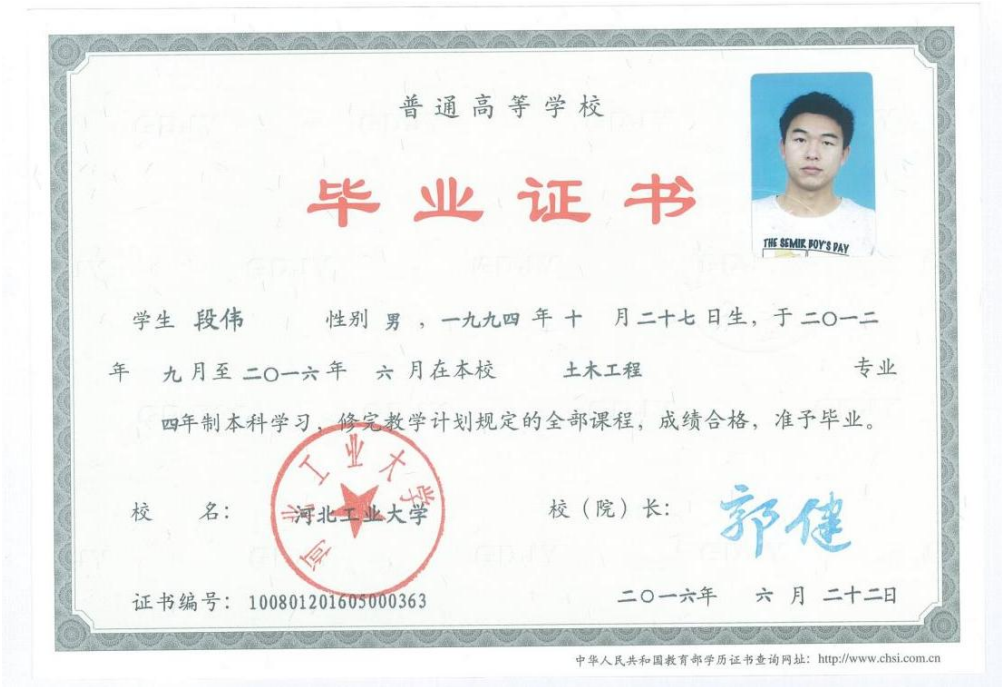 普通高等学校
毕业证书
THE SEMIR BOY'S DAY
学生 段伟 性别 男 ，一九九四 年 十 月 二十七 日生，于 二〇一二
年 九 月至 二〇一六 年 六 月在本校 土木工程 专业
四年制本科学习，修完教学计划规定的全部课程，成绩合格，准予毕业。
河北工业大学
校 名： 河北工业大学 校（院）长： 郭健
证书编号： 100801201605000363 二〇一六年 六 月 二十二日
中华人民共和国教育部学历证书查询网址：http://www.chsi.com.cn